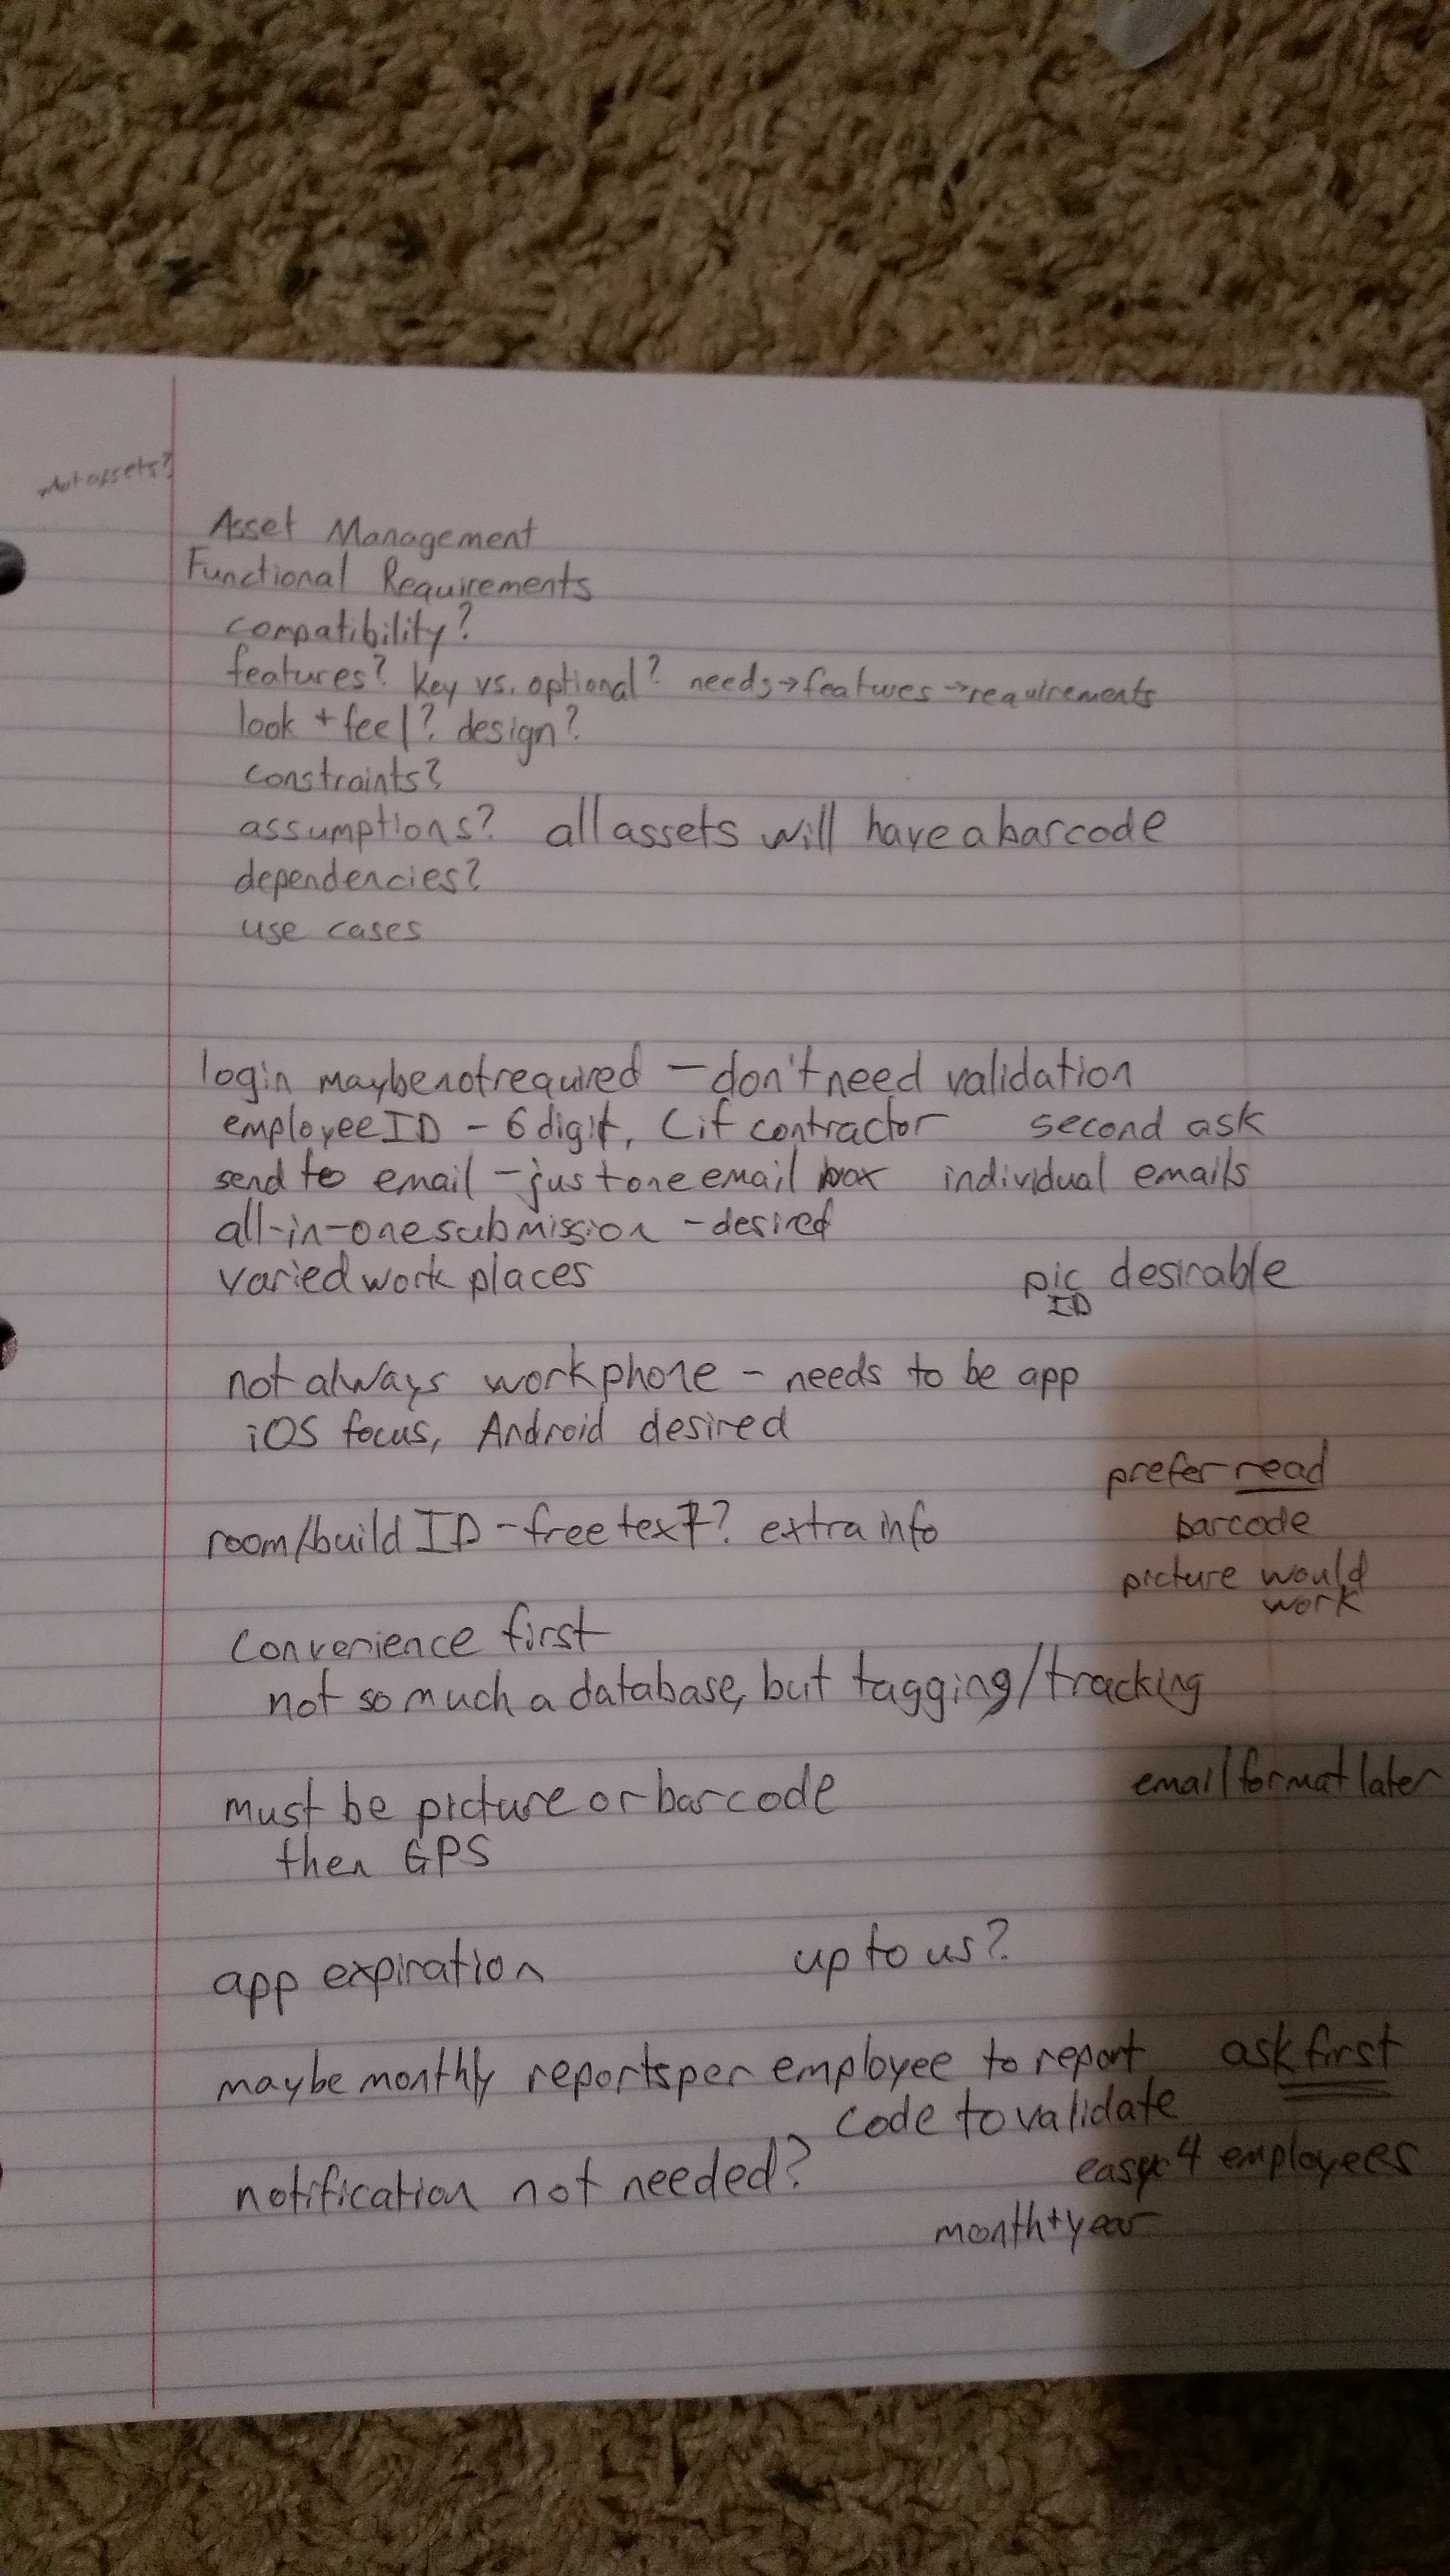 what assets?
Asset Management
Functional Requirements
compatibility?
features? key vs. optional? needs→features→requirements
look + feel? design?
constraints?
assumptions? all assets will have a barcode
dependencies?
use cases
login maybe not required – don't need validation
employee ID – 6 digit, C if contractor second ask
send to email – just one email box individual emails
all-in-one submission – desired
varied work places
pic desirable
ID
not always work phone – needs to be app
iOS focus, Android desired
prefer read
barcode
picture would
work
room/build ID – free text? extra info
convenience first
not so much a database, but tagging/tracking
email format later
must be picture or barcode
then GPS
app expiration up to us?
maybe monthly reports per employee to report ask first
code to validate
easy 4 employees
notification not needed?
month + year